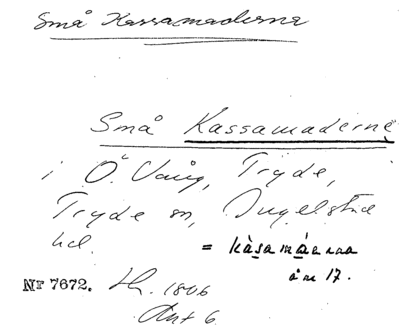 Små Kassamaderne
Små Kassamaderne
i Ö. Vång, Tryde,
Tryde sn, Ingelstad
hd. = kàsamáanna
år 17.
Nr 7672. Lh. 1806
Akt 6